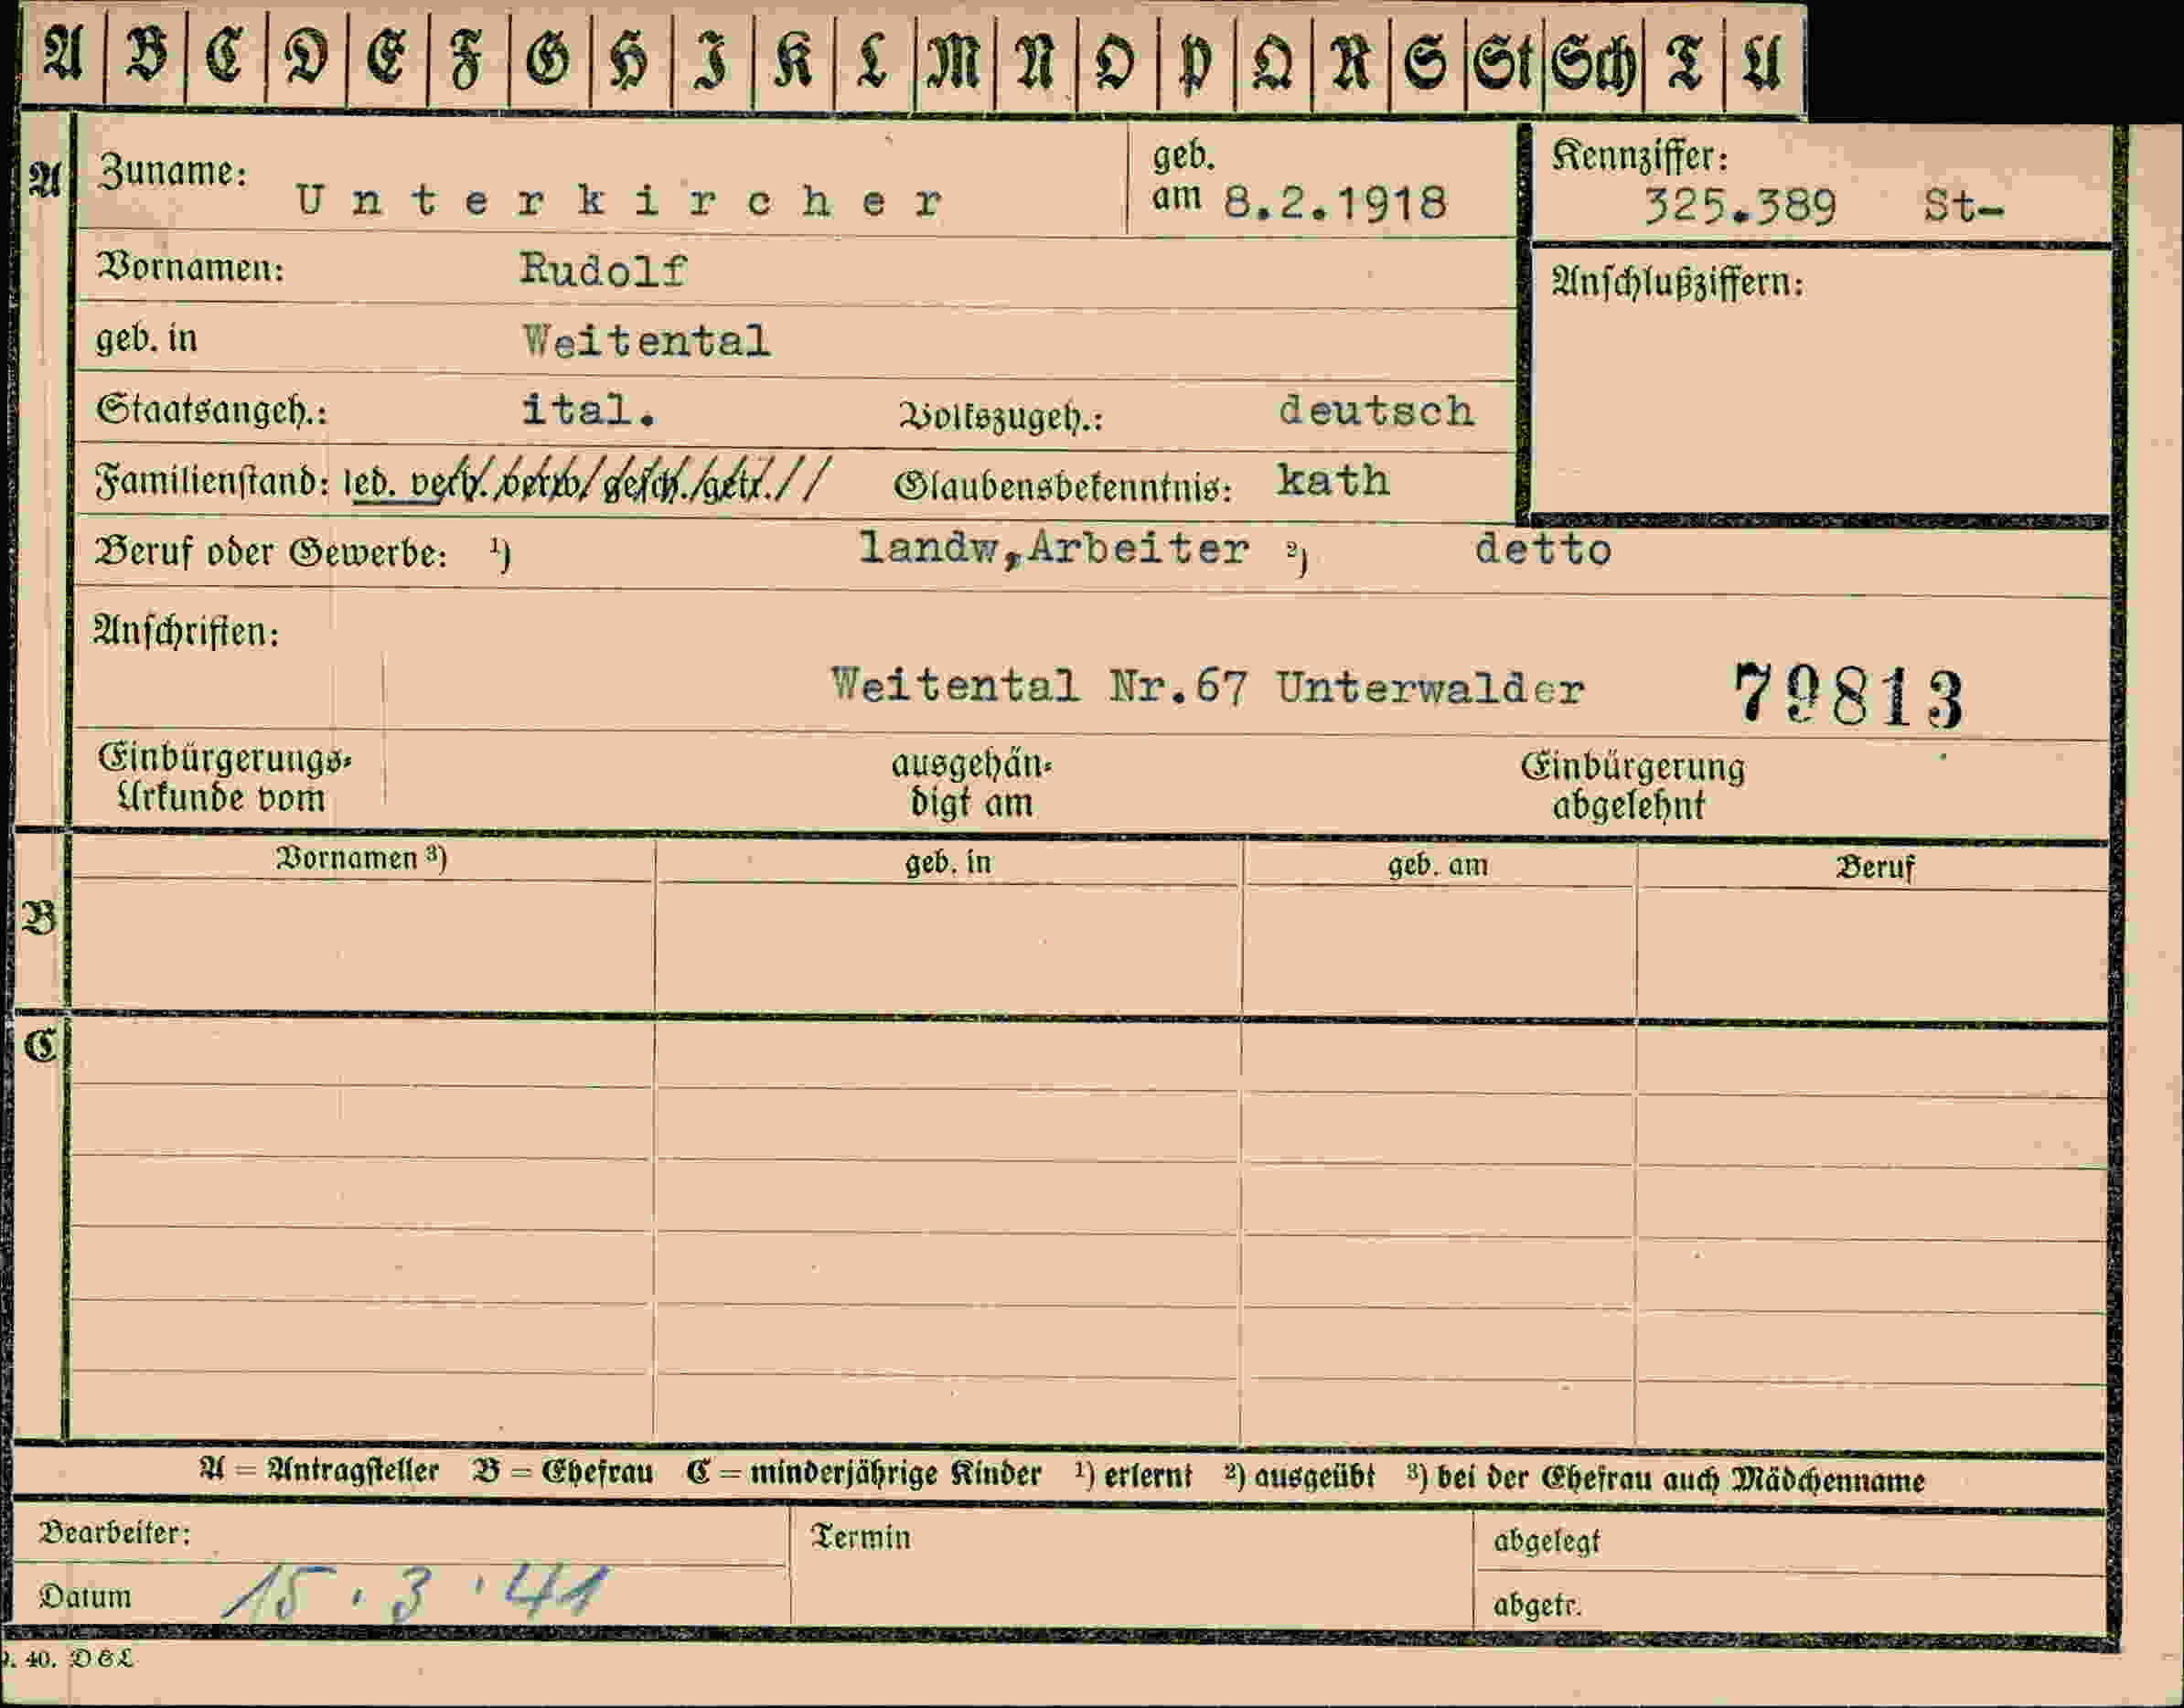 A B C D E F G H I K L M N O P Q R S St Sch T U
A Zuname: Unterkircher geb. am 8.2.1918 Kennziffer: 325.389 St-
Vornamen: Rudolf Anschlußziffern:
geb. in Weitental
Staatsangeh.: ital. Volkszugeh.: deutsch
Familienstand: led. verh. verw. gesch. getr. Glaubensbekenntnis: kath
Beruf oder Gewerbe: ¹) landw,Arbeiter ²) detto
Anschriften:
Weitental Nr.67 Unterwalder 79813
Einbürgerungs- ausgehän- Einbürgerung
Urkunde vom digt am abgelehnt
Vornamen ³) geb. in geb. am Beruf
B
C
A = Antragsteller B = Ehefrau C = minderjährige Kinder ¹) erlernt ²) ausgeübt ³) bei der Ehefrau auch Mädchenname
Bearbeiter: Termin abgelegt
Datum 15.3.41 abgetr.
40. DEL